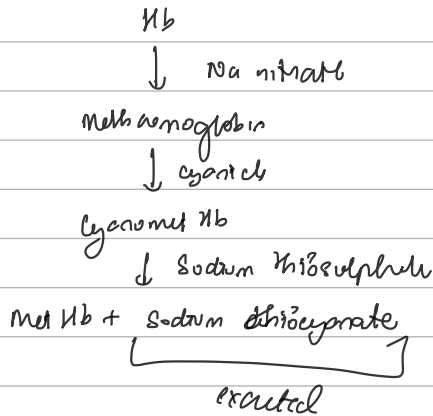 Hb
↓ Na nitrate
Methaemoglobin
↓ cyanide
Cyanomet Hb
↓ Sodium thiosulphate
Met Hb + Sodium thiocyanate
excreted